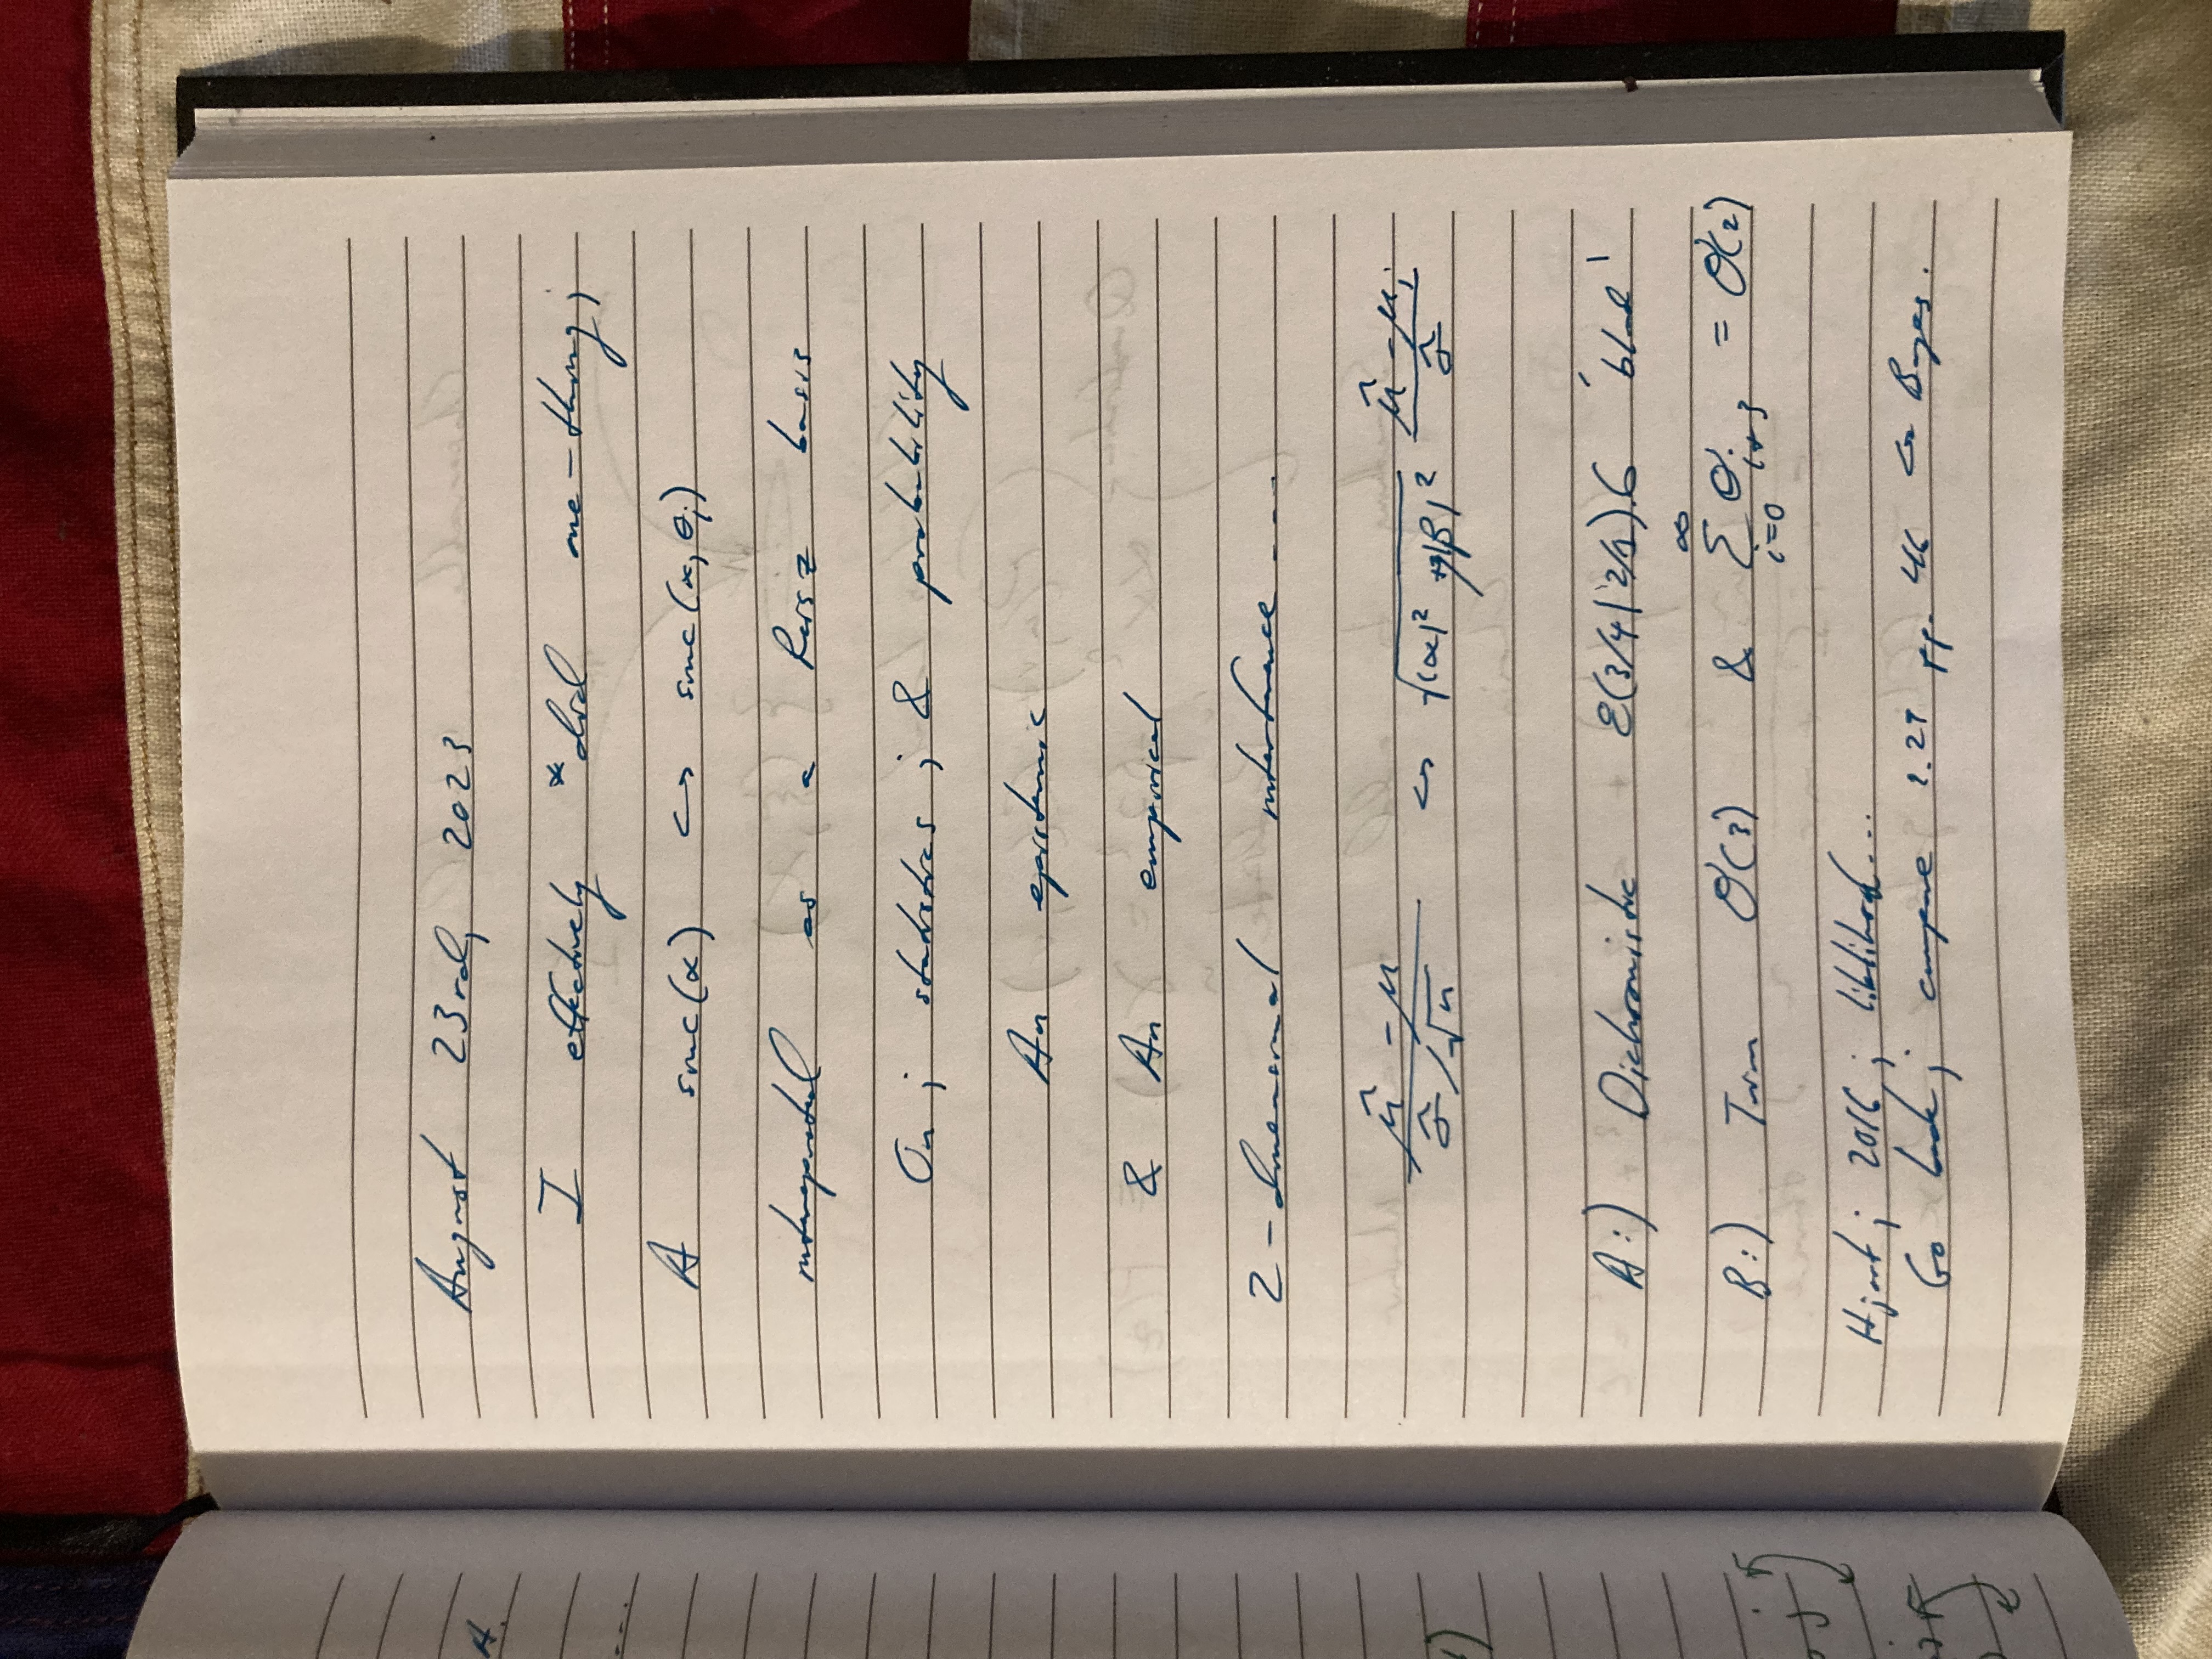 August 23rd, 2023
I effectively *did one-thing;
A sinc(x) ↪ sinc(x, θi)
interpreted as a Riesz basis
On; statistics; & probability
An epistemic
& An empirical
2-dimensional inheritance ....
μ̂ - μ / σ̂/√n ↪ √|α|² + |β|² μ̂ - μi / σ̂
A:) Dichromistic E(3/4|2/1).6 'blood'
B:) Turn O(3) & ∞ Σ i=0 O i+3 = O(2)
Hjort; 2016; liklihood...
Go back; compare 2.27 pp. 46 ↪ Bayes.
A.
....
j